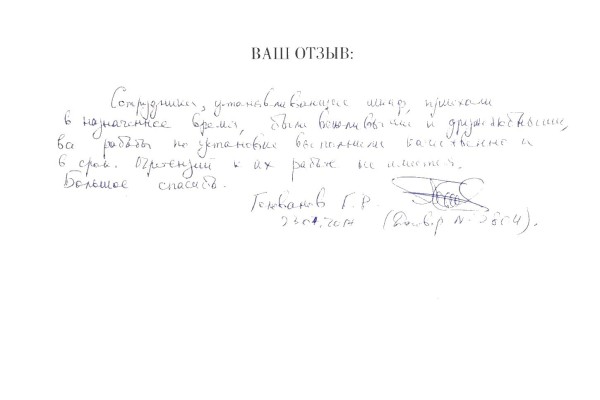 ВАШ ОТЗЫВ:
Сотрудники, устанавливающие шкаф, приехали
в назначенное время, были вежливыми и дружелюбными,
работы по установке выполнили качественно и
в срок. Претензий к их работе не имеется.
Большое спасибо.
Голованов Г.
(Договор N